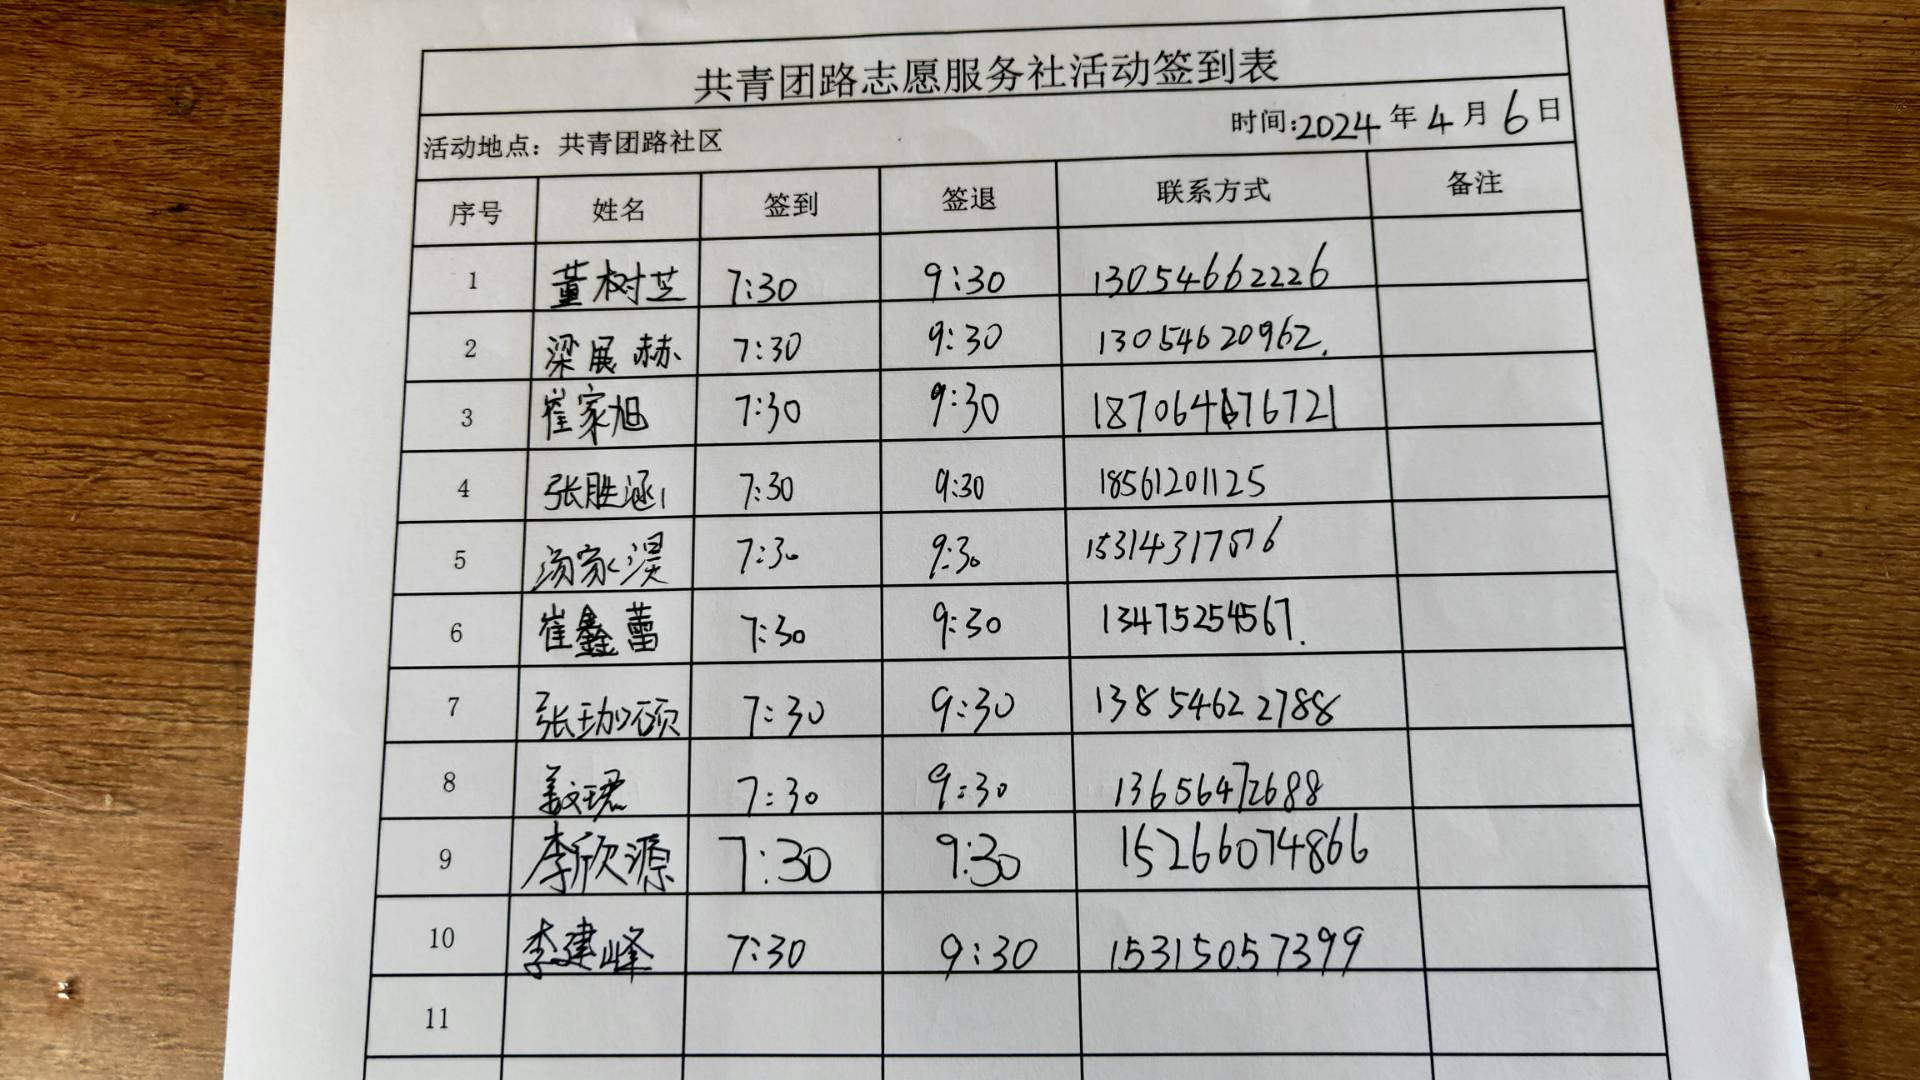 共青团路志愿服务社活动签到表
活动地点：共青团路社区 时间:2024年4月6日
序号 姓名 签到 签退 联系方式 备注
1 董树芝 7:30 9:30 13054662226
2 梁展赫 7:30 9:30 13054620962.
3 崔家旭 7:30 9:30
4 张胜涵 7:30 9:30 18561201125
5 汤家淏 7:30 9:30
6 崔鑫蕾 7:30 9:30 13475254567.
7 张珈硕 7:30 9:30 13854622788
8 7:30 9:30 13656472688
9 李欣源 7:30 9:30 15266074866
10 李建峰 7:30 9:30 15315057399
11